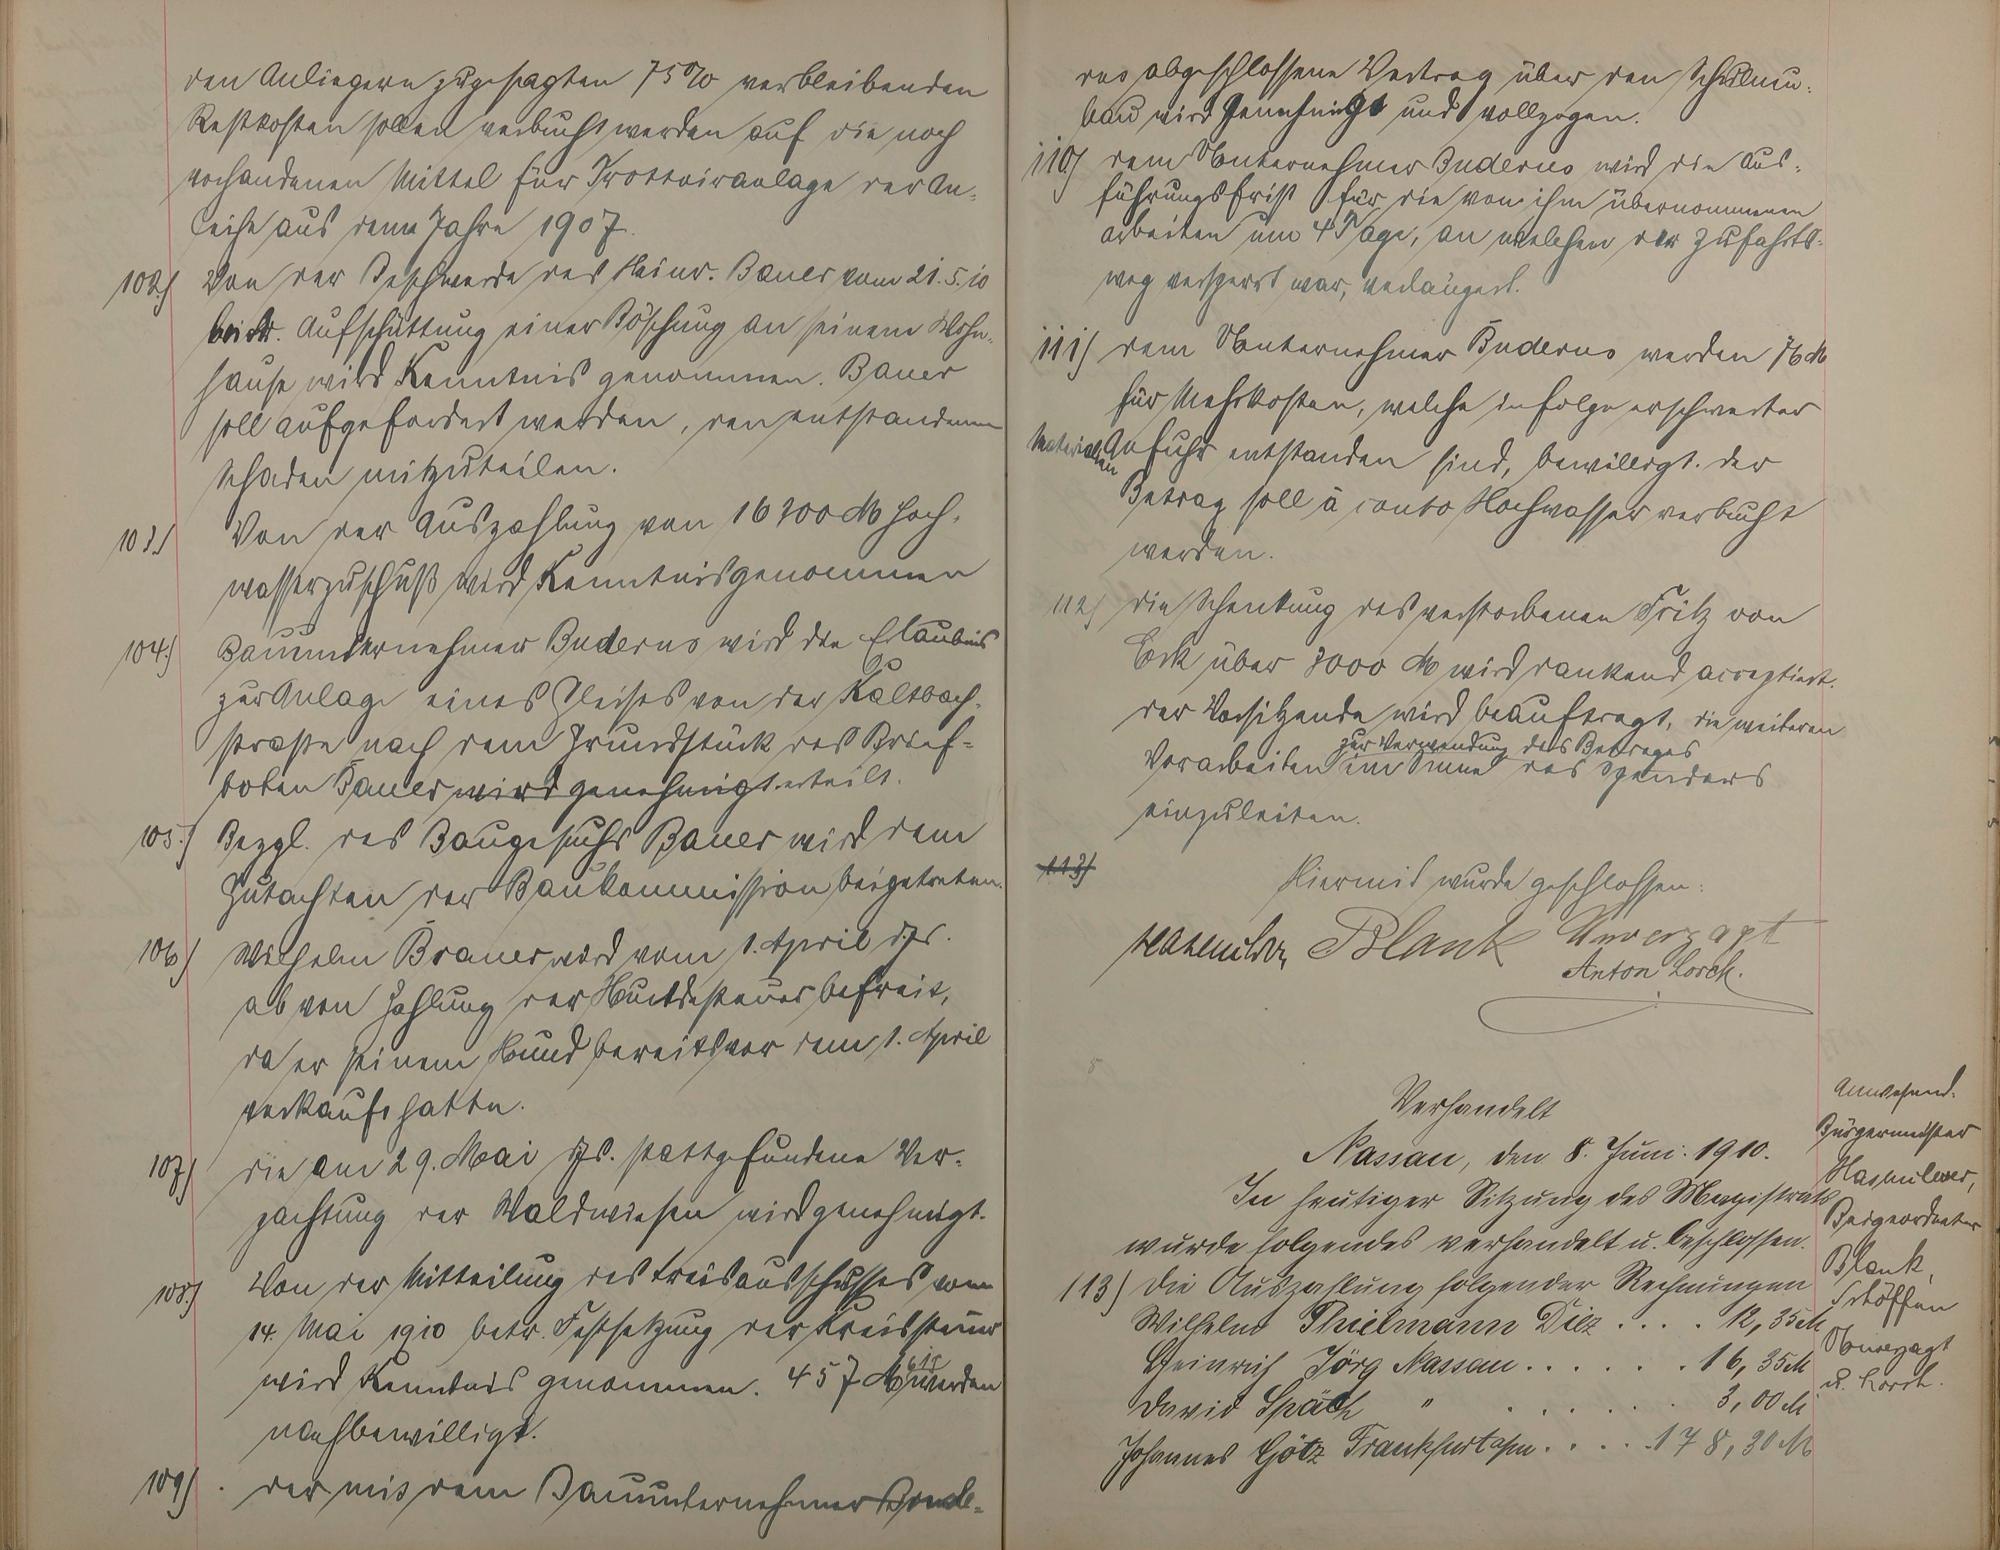 den Anliegern zugesagten 75% verbleibenden
Restkosten sollen verbucht werden auf die noch
vorhandenen Mittel für Trottoiranlage der An-
leihe aus dem Jahre 1907.
102.) Von der Beschwerde des Heinr. Bauer vom 21.5.10
betr. Aufschüttung einer Böschung an seinem Wohn-
hause wird Kenntnis genommen. Bauer
soll aufgefordert werden, den entstandenen
Schaden mitzuteilen.
103.) Von der Auszahlung von 16300 M Hoch-
wasserzuschuß wird Kenntnis genommen
104.) Bauunternehmer Buderus wird die Erlaubnis
zur Anlage eines Gleises von der Kaltbach-
straße nach dem Grundstück des Brief-
boten Bauer wird genehmigt erteilt.
105.) Bezgl. des Baugesuchs Bauer wird dem
Gutachten der Baukommission beigetreten.
106) Wilhelm Bräuer wird vom 1. April ds. Js.
ab von Zahlung der Hundesteuer befreit,
da er seinem Hund bereits vor dem 1. April
verkauft hatte.
107) Die am 29. Mai ds. Js. stattgefundene Ver-
pachtung der Waldwiesen wird genehmigt.
108.) Von der Mitteilung des Kreisausschusses vom
14. Mai 1910 betr. Festsetzung der Kreissteuer
wird Kenntnis genommen. 457 M werden
nachbewilligt.
109) Der mit dem Bauunternehmer Bude-
rus abgeschlossene Vertrag über den Schulneu-
bau wird genehmigt und vollzogen.
110) Dem Unternehmer Buderus wird die Aus-
führungsfrist für die von ihm übernommenen
Arbeiten um 4 Tage, an welchen der Zufahrts-
weg versperrt war, verlängert.
111) Dem Unternehmer Buderus werden 76 M
für Mehrkosten, welche infolge erschwerter
Materialien Anfuhr entstanden sind, bewilligt. Der
Betrag soll à conto Hochwasser verbucht
werden.
112) Die Schenkung des verstorbenen Fritz von
Eck über 3000 M wird dankend acceptiert.
Der Vorsitzende wird beauftragt, die weiteren
zur Verwendung des Betrages
Vorarbeiten im Sinne des Spenders
einzuleiten.
113)
Hiermit wurde geschlossen:
Hasenclever Blank Unverzagt
Anton Lorch.
Verhandelt
Nassau, den 8. Juni 1910.
In heutiger Sitzung des Magistrats
wurde folgendes verhandelt u. beschlossen.
113) Die Auszahlung folgender Rechnungen
Wilhelm Thielmann Diez . . . . 12,35 M
Heinrich Jörg Nassau . . . . . . 16,35 M
David Späth " . . . . . . 3,00 M
Johannes Götz Frankfurt a/m . . . . 178,30 M
Anwesend.
Bürgermeister
Hasenclever,
Beigeordneter
Blank,
Schöffen
Unverzagt
u. Lorch.